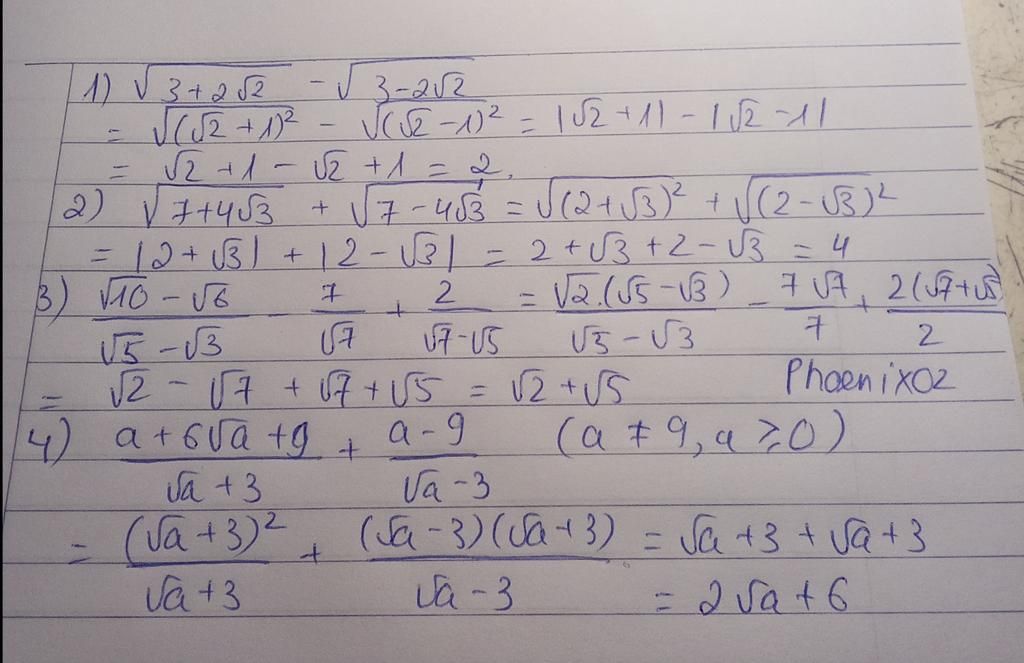 1) √(3+2√2) - √(3-2√2)
= √((√2+1)²) - √((√2-1)²) = |√2+1| - |√2-1|
= √2+1-√2+1 = 2.
2) √(7+4√3) + √(7-4√3) = √((2+√3)²) + √((2-√3)²)
= |2+√3| + |2-√3| = 2+√3+2-√3 = 4
3) (√10-√6)/(√5-√3) - 7/√7 + 2/(√7-√5) = √2.(√5-√3)/(√5-√3) - 7√7/7 + 2(√7+√5)/2
= √2 - √7 + √7 + √5 = √2+√5 Phoenix02
4) (a+6√a+9)/(√a+3) + (a-9)/(√a-3) (a ≠ 9, a ≥ 0)
= (√a+3)²/(√a+3) + (√a-3)(√a+3)/(√a-3) = √a+3+√a+3
= 2√a+6